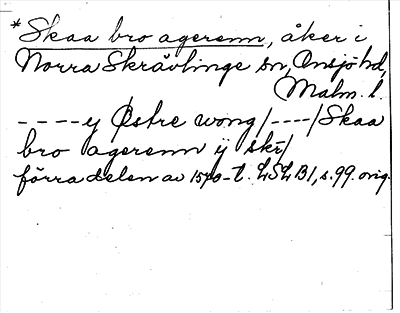 *Skaa bro agerenn, åker i
Norra Skrävlinge sn, Onsjö hd,
Malm. l.
----y Østre wong/----/Skaa
bro agerenn ij skr/
förra delen av 1570-t. LSLB1, s. 99. orig.